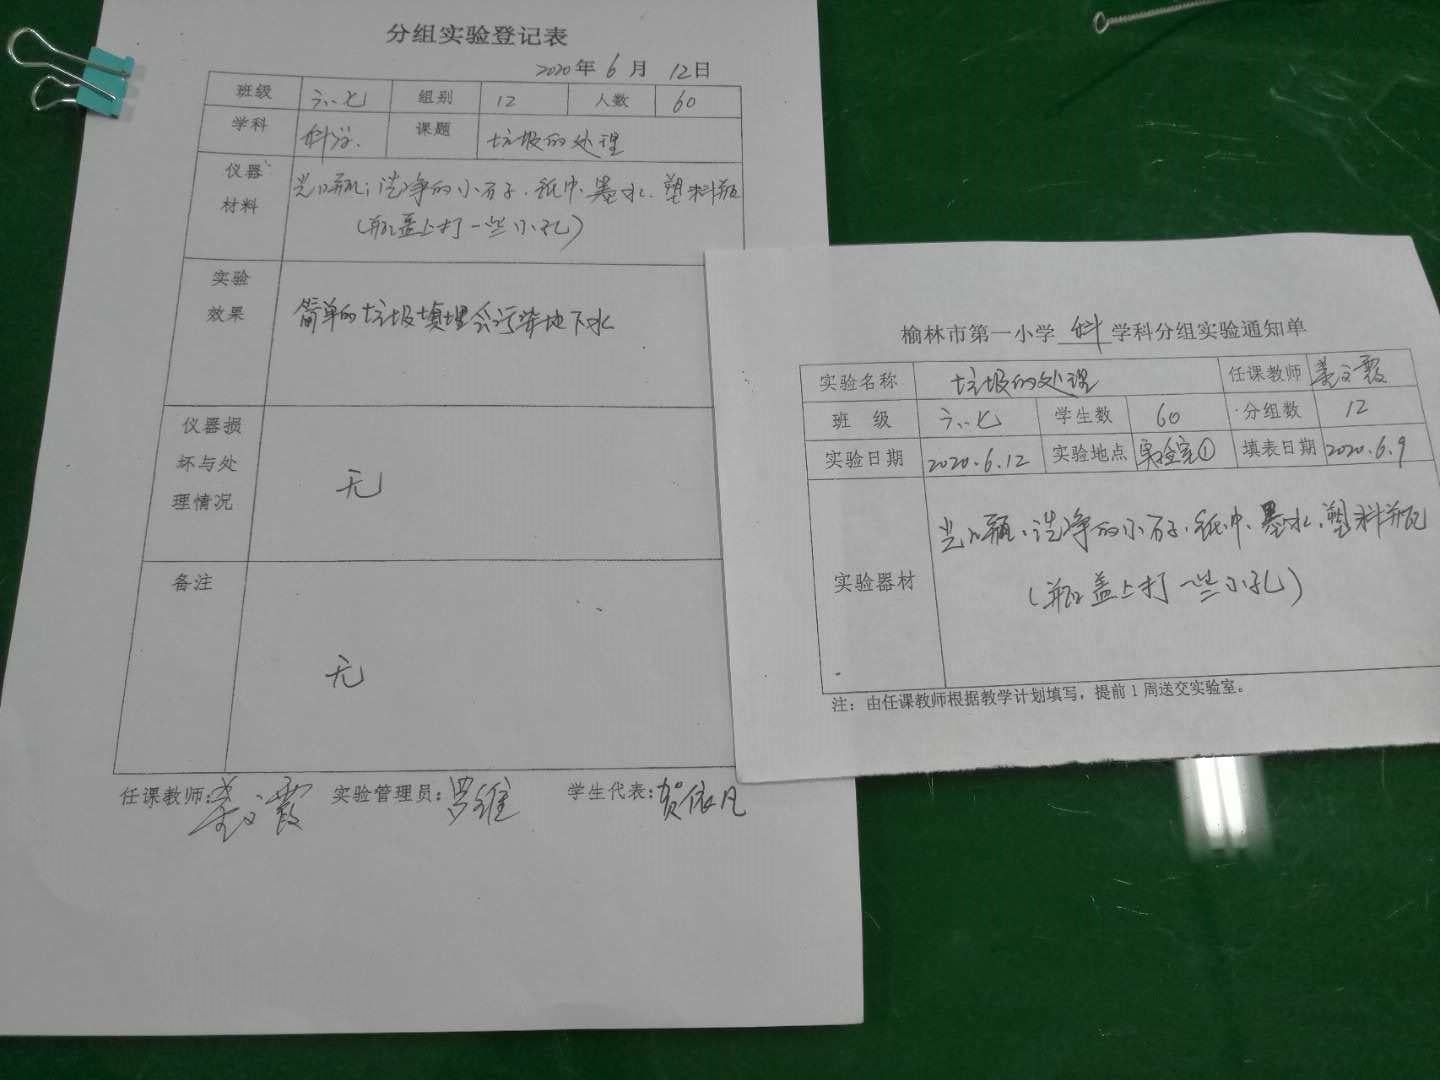 分组实验登记表
2020年 6 月 12日
班级 六.七 组别 12 人数 60
学科 科学. 课题 垃圾的处理
仪器材料 广口瓶、洗净的小石子、纸巾、墨水、塑料瓶
(瓶盖上打一些小孔)
实验效果 简单的垃圾填埋会污染地下水
仪器损坏与处理情况 无
备注 无
任课教师: 霞 实验管理员:罗维 学生代表:贺依凡
榆林市第一小学 科 学科分组实验通知单
实验名称 垃圾的处理 任课教师 霞
班 级 六.七 学生数 60 分组数 12
实验日期 2020.6.12 实验地点 实验室① 填表日期 2020.6.9
实验器材 广口瓶、洗净的小石子、纸巾、墨水、塑料瓶
(瓶盖上打一些小孔)
注：由任课教师根据教学计划填写，提前1周送交实验室。